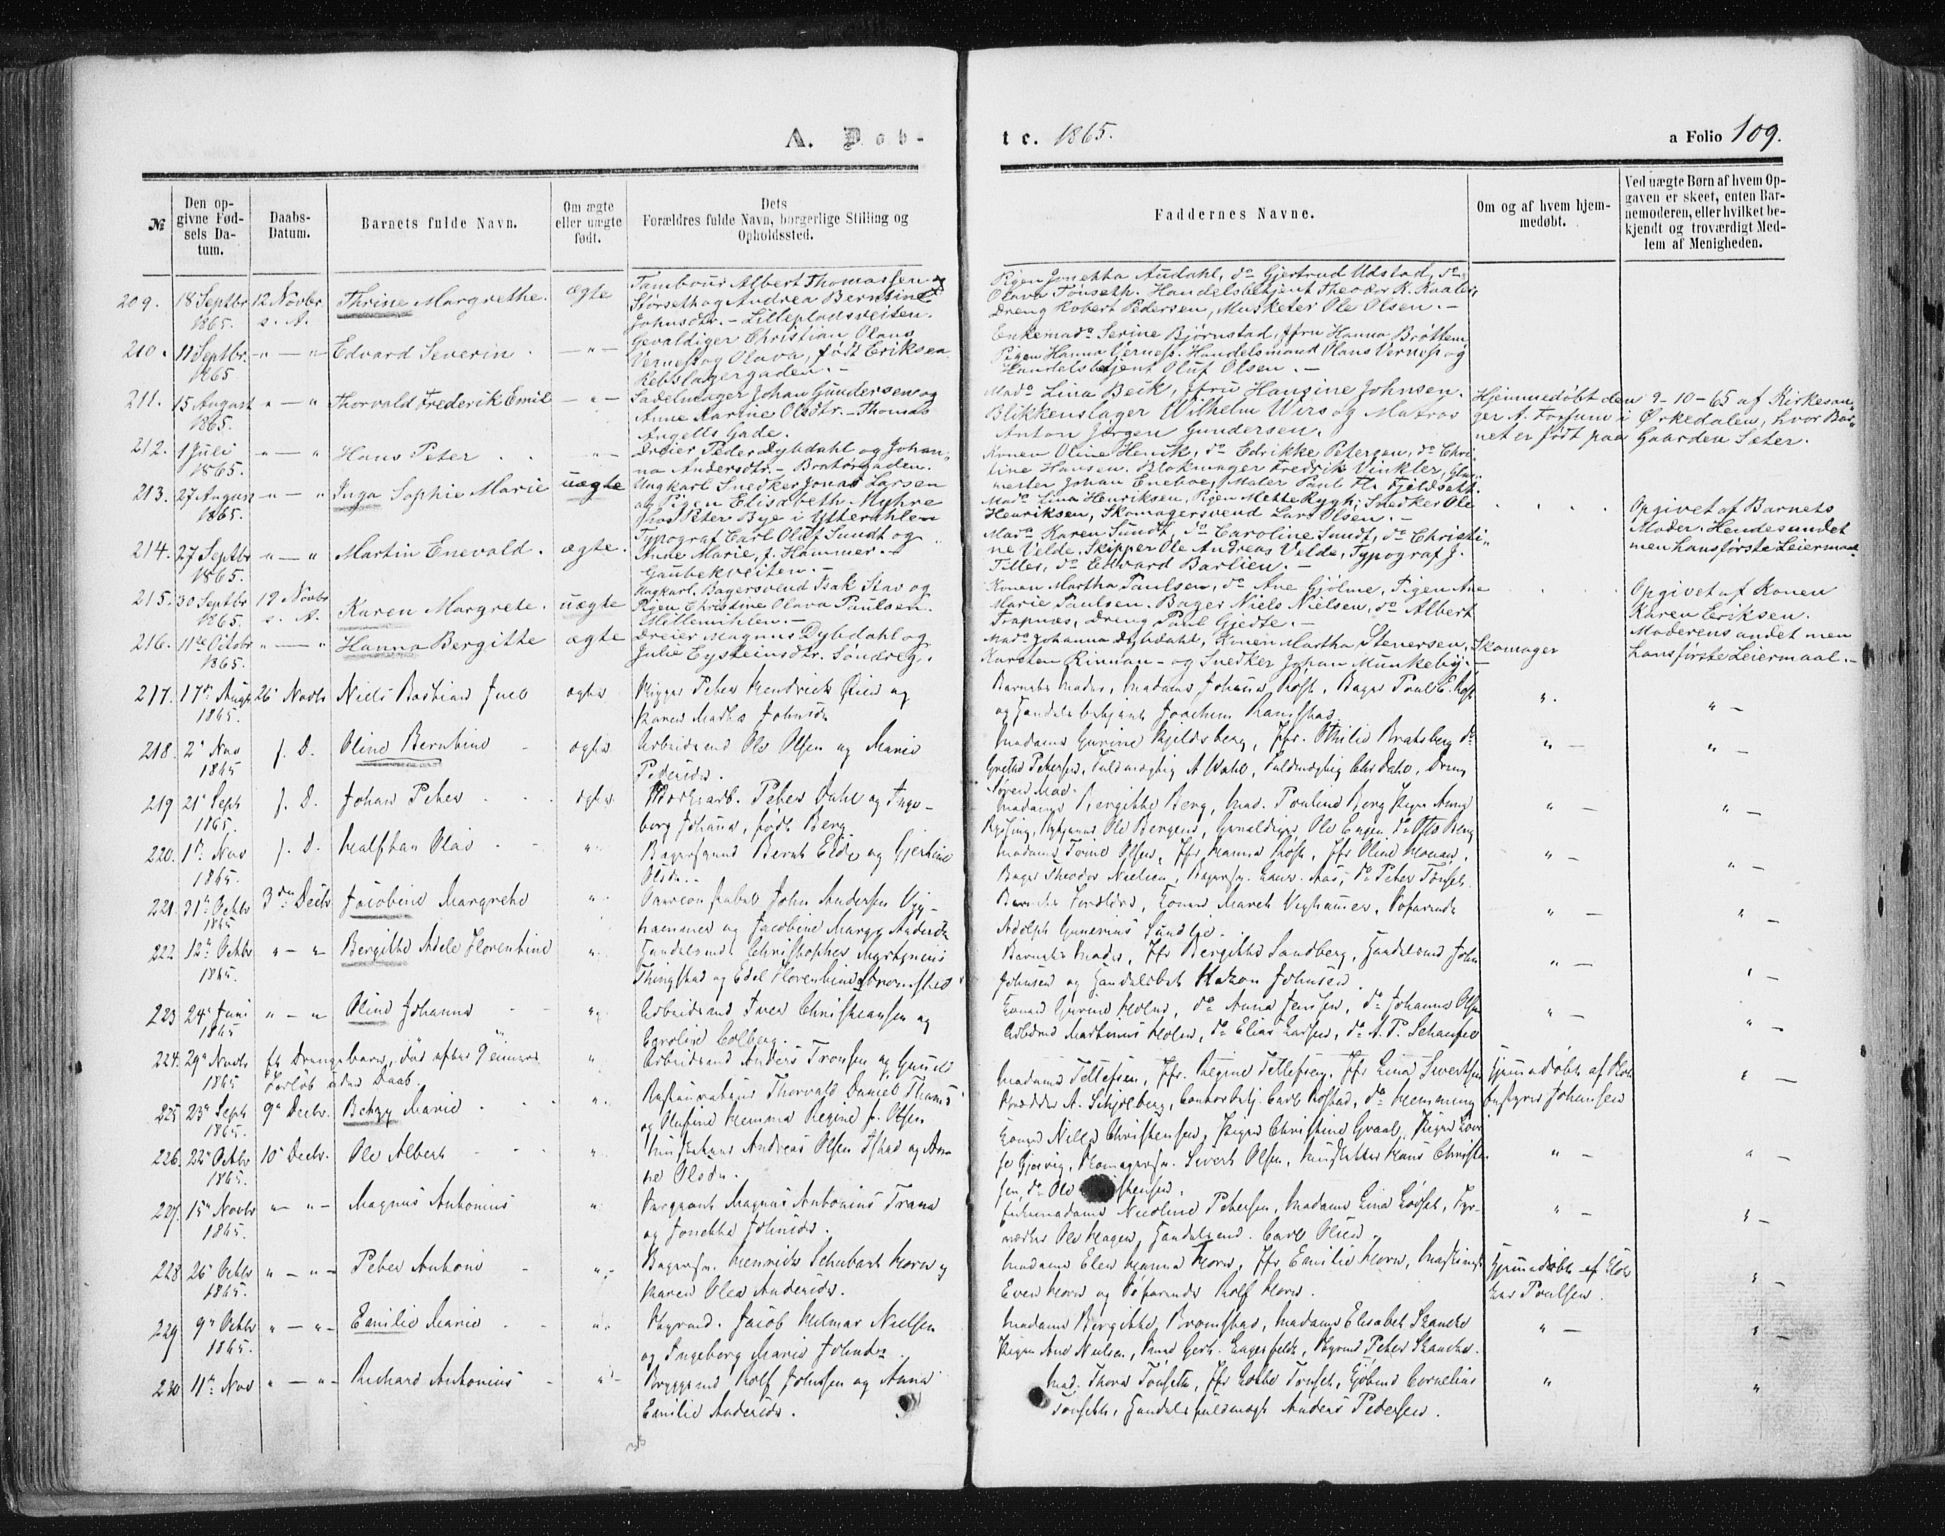 A. Døb-
te. 1865.
a Folio 109.
№
Den opgivne Fødsels Datum.
Daabs-Datum.
Barnets fulde Navn.
Om ægte eller uægte født.
Dets Forældres fulde Navn, borgerlige Stilling og Opholdssted.
Faddernes Navne.
Om og af hvem hjemmedøbt.
Ved uægte Børn af hvem Opgaven er skeet, enten Barnemoderen, eller hvilket bekjendt og troværdigt Medlem af Menigheden.
209. 18 Septbr 1865. 12 Novbr s. A. Thrine Margrethe. ægte
Tambour Albert Thomassen
Størseth og Andrea Berntine
Johnsdtr. - Lillepladsveiten.
Pigen Jonetta Audahl, do Gjertrud Udstad, do
Olava Tønseth. Handelsbetjent Theodor K. Kvalei,
Dreng Robert Pedersen, Musketer Ole Olsen. -
210. 11 Septbr. 1865 " - " Edvard Severin. - " -
Gevaldiger Christian Olaus
Verness og Olava, født Eriksen
Rebslagergaden. -
Enkemado Serine Bjørnstad, Jfru Hanna Brøttem,
Pigen Hanna Gjerness. Handelsmand Olaus Verness og
Handelsbetjent Oluf Olsen. -
211. 15 August 1865. " - " Thorvald Frederik Emil - " -
Sadelmager Johan Gundersen og
Anne Karine Olsdtr. - Thomas
Angells Gade.
Mado Lina Beck, Jfru Hansine Johnsen.
Blikkenslager Wilhelm Wirs og Matros
Anton Jørgen Gundersen.
Hjemmedøbt den 9-10-65 af Kirkesan-
ger A. Fossum i Ørkedalen, hvor Bar-
net er født paa Gaarden Seter.
212. 1 Juli 1865. " - " Hans Peter - " -
Dreier Peder Dybdahl og Johan-
na Andersdtr. - Bratørgaden.
Konen Oline Henrik, do Edrikke Petersen, do Chri-
tine Hansen. Blokmager Fredrik Vinkler, Glas-
mester Johan Eneboe, Maler Paul Fr. Fjeldseth.
213. 27 August 1865. " - " Inga Sophie Marie uægte
Ungkarl Snedker Jonas Larsen
og Pigen Elisabeth Myhre
hos Peter Bye i Ytterahlen
Mado Lina Henriksen, Pigen Mette Rygh, Snedker Ole
Henriksen, Skomagersvend Lars Olsen. -
Opgivet af Barnets
Moder. Hendes andet
men hans første Leiermaal
214. 27 Septbr 1865. " - " Martin Enevald. ægte.
Typograf Carl Oluf Sundt og
Ane Marie, f. Hammer. -
Gaubekveiten. -
Mado Karen Sundt, do Caroline Sundt, do Christi-
ne Velde, Skipper Ole Andreas Velde, Typograf J.
Tilles, do Edvard Barlien. -
215. 30 Septbr 1865. 19 Novbr s. A. Karen Margrete. uægte
Ungkarl. Bagersvend Isak Stav og
Pigen Christine Olava Paulsen.
Millemihlen. -
Konen Martha Paulsen, do Ane Gjølme, Pigen Ane
Marie Paulsen. Bager Niels Nielsen, do Albert
Trapnæs, Dreng Paul Gjedte. -
Opgivet af Konen
Karen Eriksen.
Moderens andet men
hans første Leiermaal. -
216. 11te Octobr 1865. " - " Hanna Bergitte ægte
Dreier Magnus Dybdahl og
Julie Eysteinsdtr. Søndreg.
Mado Johanna Dybdahl, Konen Martha Stenersen, Skomager
Karsten Rinnan - og Snedker Johan Munkeby. -
217. 17de Augst 1865. 26 Novbr Niels Bastian Juel ægte
Skipper Peter Hendrich Øien og
Karen Martha Johnsdr
Barnets Moder, Madame Johana Rost, Bager Poul E. Rost
og Handelsbetjent Joachim Ramstad
" " -
218. 2 Nov 1865 f. D. Oline Berntine ægte
Arbeidsmd Ole Olsen og Marie
Pedersdr.
Madame Gurine Kjeldsberg, Jfr. Othilie Bratsberg do
Grethe Petersen, Fuldmægtig A Wahl, Fuldmægtig Chr Dahl, Dreng
Søren Mad.
" - " -
219 21 Sept 1865. f. D. Johan Peter ægte
Peter Dahl og Inge-
borg Johana, født Berg
Madame Bergitte Berg, Mad. Pouline Berg Pigen Anne
Ole Bergens, Gevaldiger Ole Engen do Otto Berg
" - " -
220. 1te Nov 1865. f. D. Halfdan Olai "
Bagersvend Bernt Elde og Gjertine
Olsdr.
Madame Trine Olsen, Jfr Hanna Rost, Jfr Oline
Bager Theodor Nielsen, Bagersv. Laur. Aas, do Peter Tønset.
" - " -
221. 31te Octbr 1865 3die Decbr Jacobine Margrethe "
John Andersen Vig-
hammer og Jacobine Margr. Andersdr
Barnets Forældre, Konen Mareth Vighammer, Søfarende
Adolph Gunerius Sundlie.
" - " -
222 12te Octbr 1865. " - " Bergitte Adele Florentine "
Handelsmd. Christopher Martinius
Thingstad og Edel Florentine Bromsted
Barnets Moder, Jfr Bergitte Sandberg, Handelsmd John
Johnsen og Handelsbet. Hakon Johnsen.
" - " -
223 24 Juni 1865 " - " Oline Johanna "
Arbeidsmd Iver Christiansen og
Caroline Colberg.
Konen Gurine Holm, do Anna Jensen, do Johanna Olsen
Arbdsmd Martinius Holm, do Elias Larsen, do A. P. Schanche
" - " -
224. 29 Novbr 1865 Et Drengebarn, Død efter 9 Timers
Forløb uden Daab. "
Arbeidsmd Anders Tronsen og Gunild
225 23 Septr 1865. 9 Decbr. Betzy Marie "
Restaurateur Thorvald Daniel Thams
og Olufine Hemma Regine f. Olsen
Madame Tellefsen, Jfr. Regine Tellefsen, Jfr Lina Sivertsen
A. Schjølberg, Contorbetj. Carl Rostad, do Hemming
Hjemmedøbt af
bestyrer Johansen
226. 22 Octbr 1865. 10 Decbr. Ole Albert "
Musketeer Andreas Olsen Ystad og An-
ne Olsdr.
Konen Nille Christensen, Pigen Christine Graal, Pigen Lov-
se Gjervig, Skomagersv. Sivert Olsen, Musketer Hans Christen-
sen, do Ole
" - " -
227. 15 Novbr 1865. " - " - Magnus Antonius "
Sergeant Magnus Antonius Trana
og Jonetta Johnsdr.
Enkemadame Nicoline Petersen, Madame Lina Lødset,
Ole Hagen, Handelsmd. Carl Olsen.
" - " -
228 26 Octbr 1865. " - " - Peter Antoni "
Bagersv. Henrich Schubart Horn og
Karen Olea Andersdr.
Madame Elen Hanna Horn, Jfr Emilie Horn, Maskinist
Even Horn og Søfarende Rolf Horn.
Hjemmedøbt af
Poulsen.
229 9 Octbr 1865. " - " - Emilie Marie "
Jacob Hilmar Nielsen
og Ingeborg Marie Johnsdr
Madame Bergitte Bromstad, Madame Elisabet Skancke
Pigen Ane Nielsen, Peter Skancke.
" - " -
230 11te Nov " - " - Richard Antonius "
Bryggemd Rolf Johnsen og Anna
Emilie Andersdr.
Mad. Thora Tønseth, Jfr Tønset, Cornelius
Tønseth, Handelsfuldmægt. Anders Pedersen.
" "